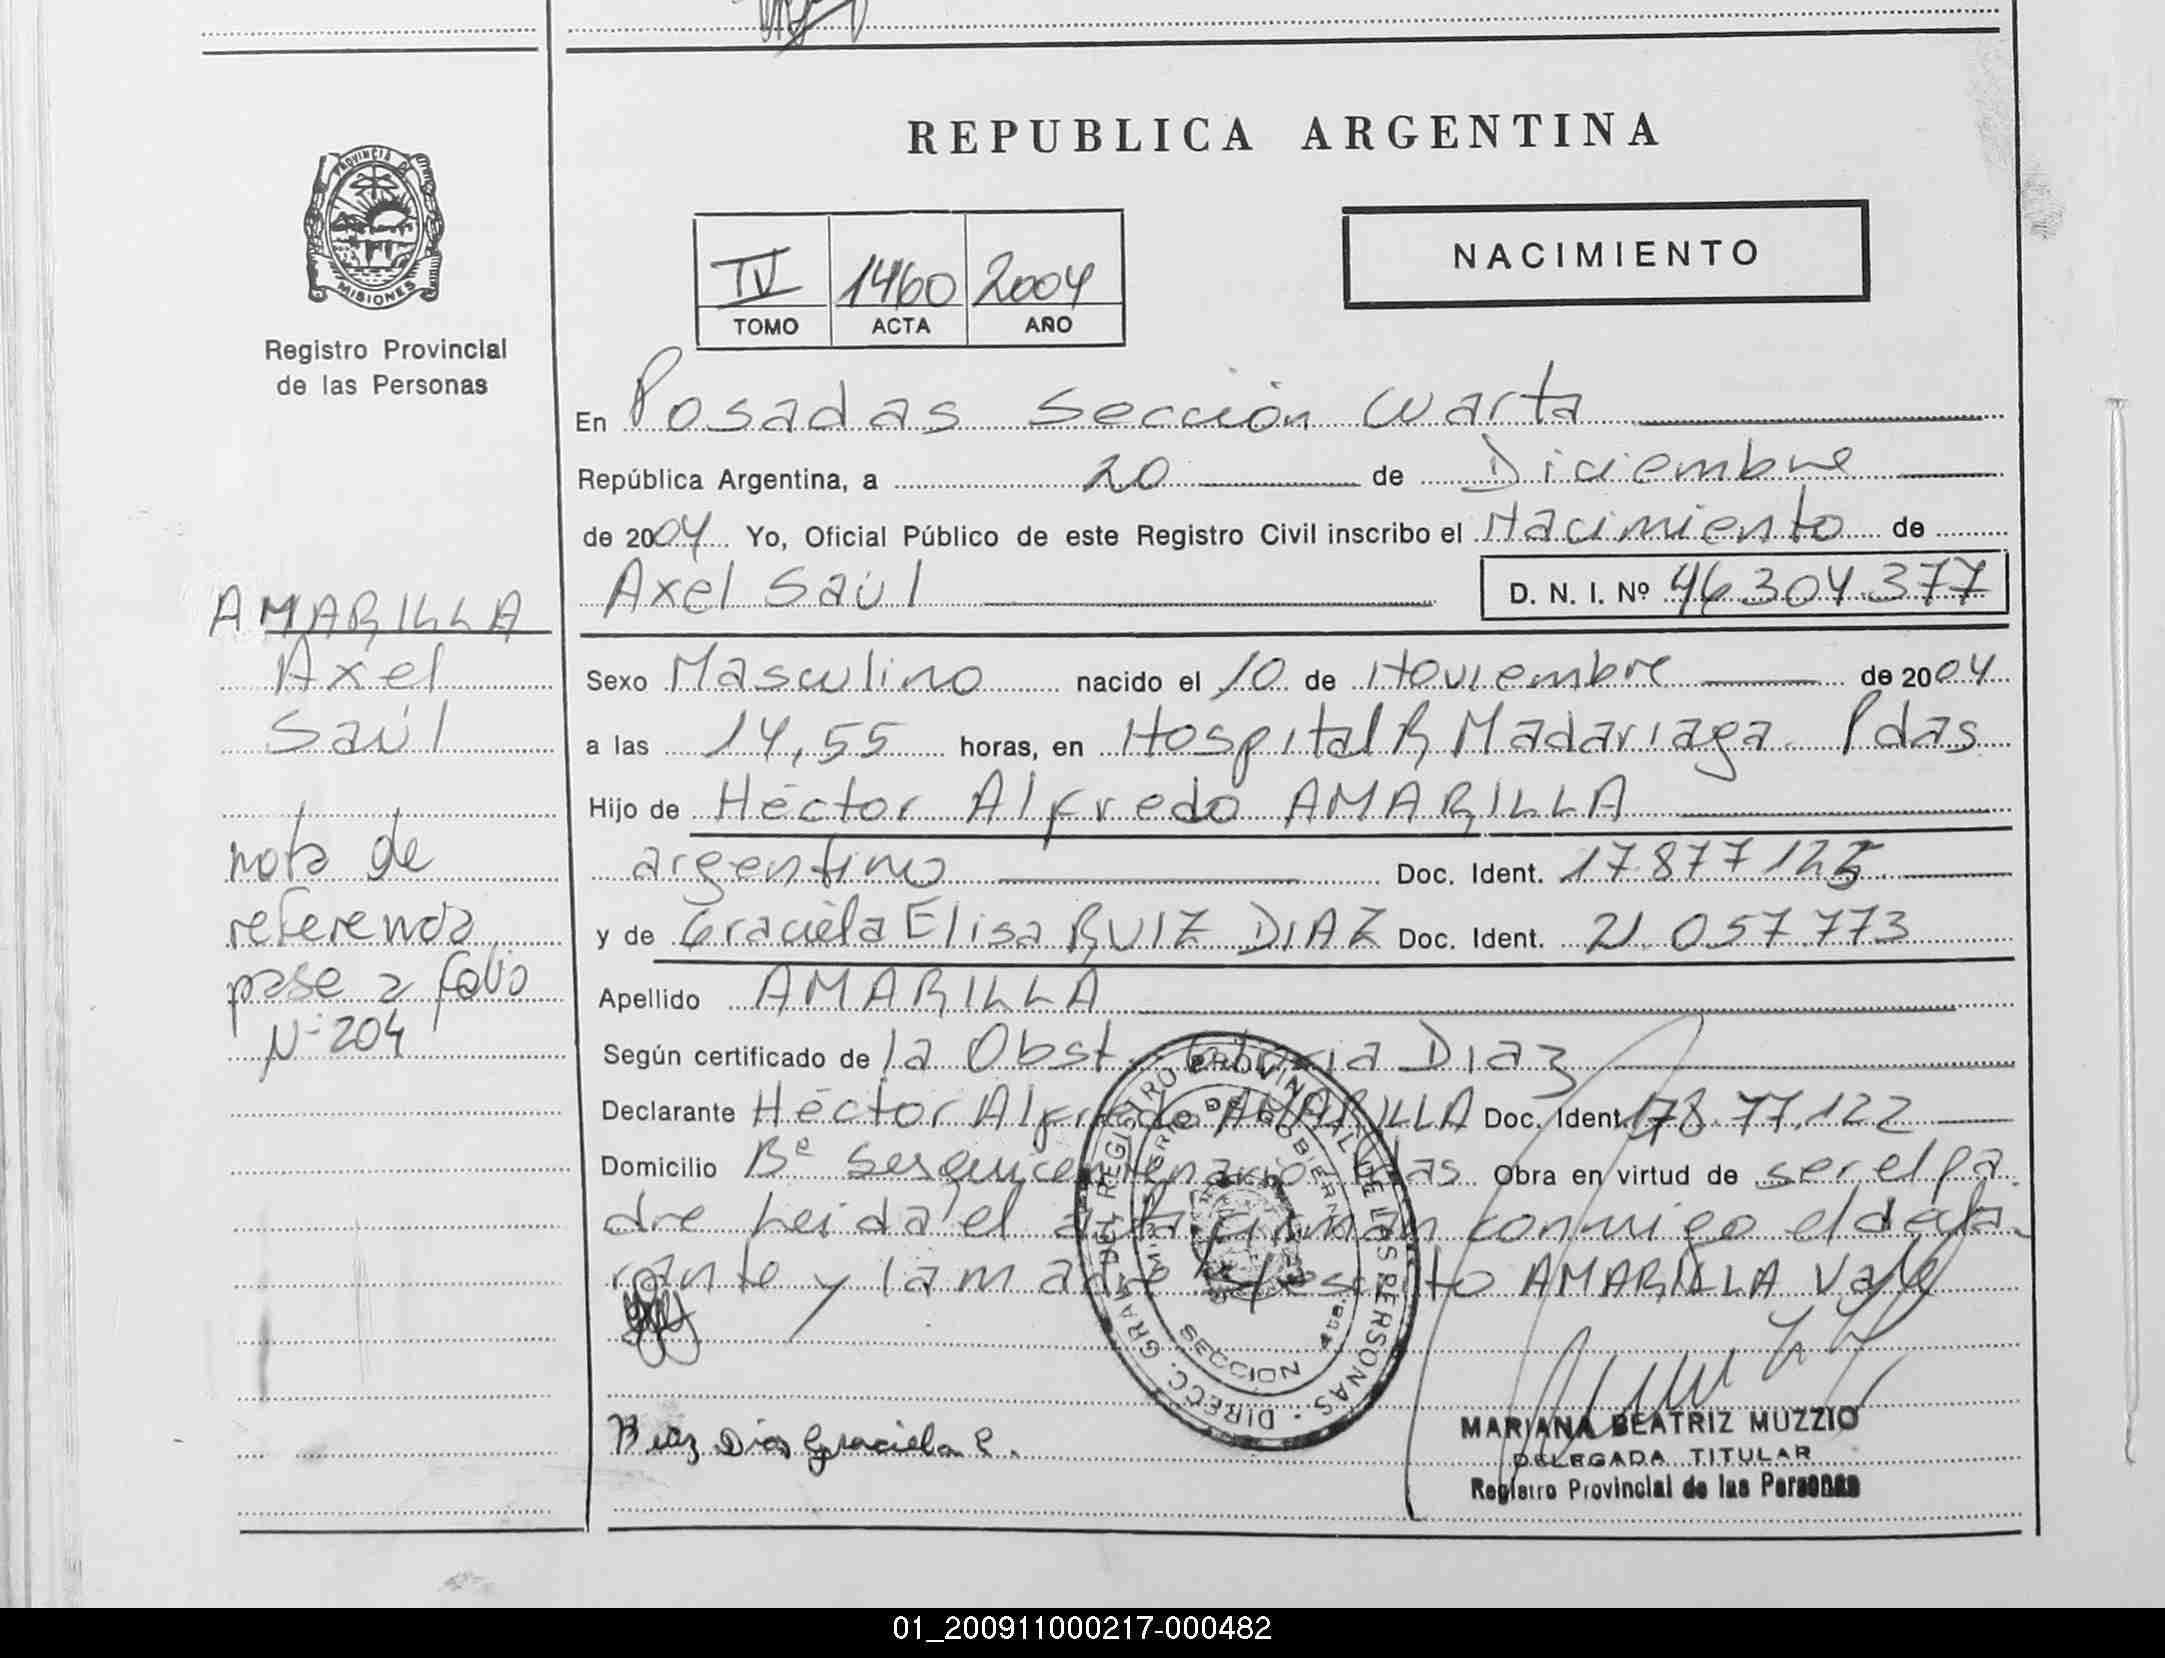 REPUBLICA ARGENTINA
PROVINCIA DE
MISIONES
Registro Provincial
de las Personas
NACIMIENTO
IV 1460 2004
TOMO ACTA AÑO
En Posadas Sección Cuarta
República Argentina, a 20 de Diciembre
de 2004 Yo, Oficial Público de este Registro Civil inscribo el Nacimiento de
Axel Saúl D. N. I. Nº 46 304 377
AMARILLA
Axel
Saúl
Sexo Masculino nacido el 10 de Noviembre de 2004
a las 14,55 horas, en Hospital R Madariaga Pdas
Hijo de Héctor Alfredo AMARILLA
argentino Doc. Ident. 17877
y de Graciela Elisa RUIZ DIAZ Doc. Ident. 21.057.773
Apellido AMARILLA
nota de
referencia
pase a folio
N- 204
Según certificado de la Obst. Diaz
Declarante Héctor Alfredo AMARILLA Doc. Ident. 178.77.122
Domicilio Bº Sesquicentenario Pdas Obra en virtud de ser el pa
dre Leida el acta firman conmigo el decla
rante y la madre S/escrito AMARILLA Vale
DIRECC. GRAL DEL REGISTRO PROVINCIAL DE LAS PERSONAS
MINISTERIO DE GOBIERNO
SECCION 4ta.
Ruiz Diaz Graciela E.
MARIANA BEATRIZ MUZZIO
DELEGADA TITULAR
Registro Provincial de las Personas
01_200911000217-000482